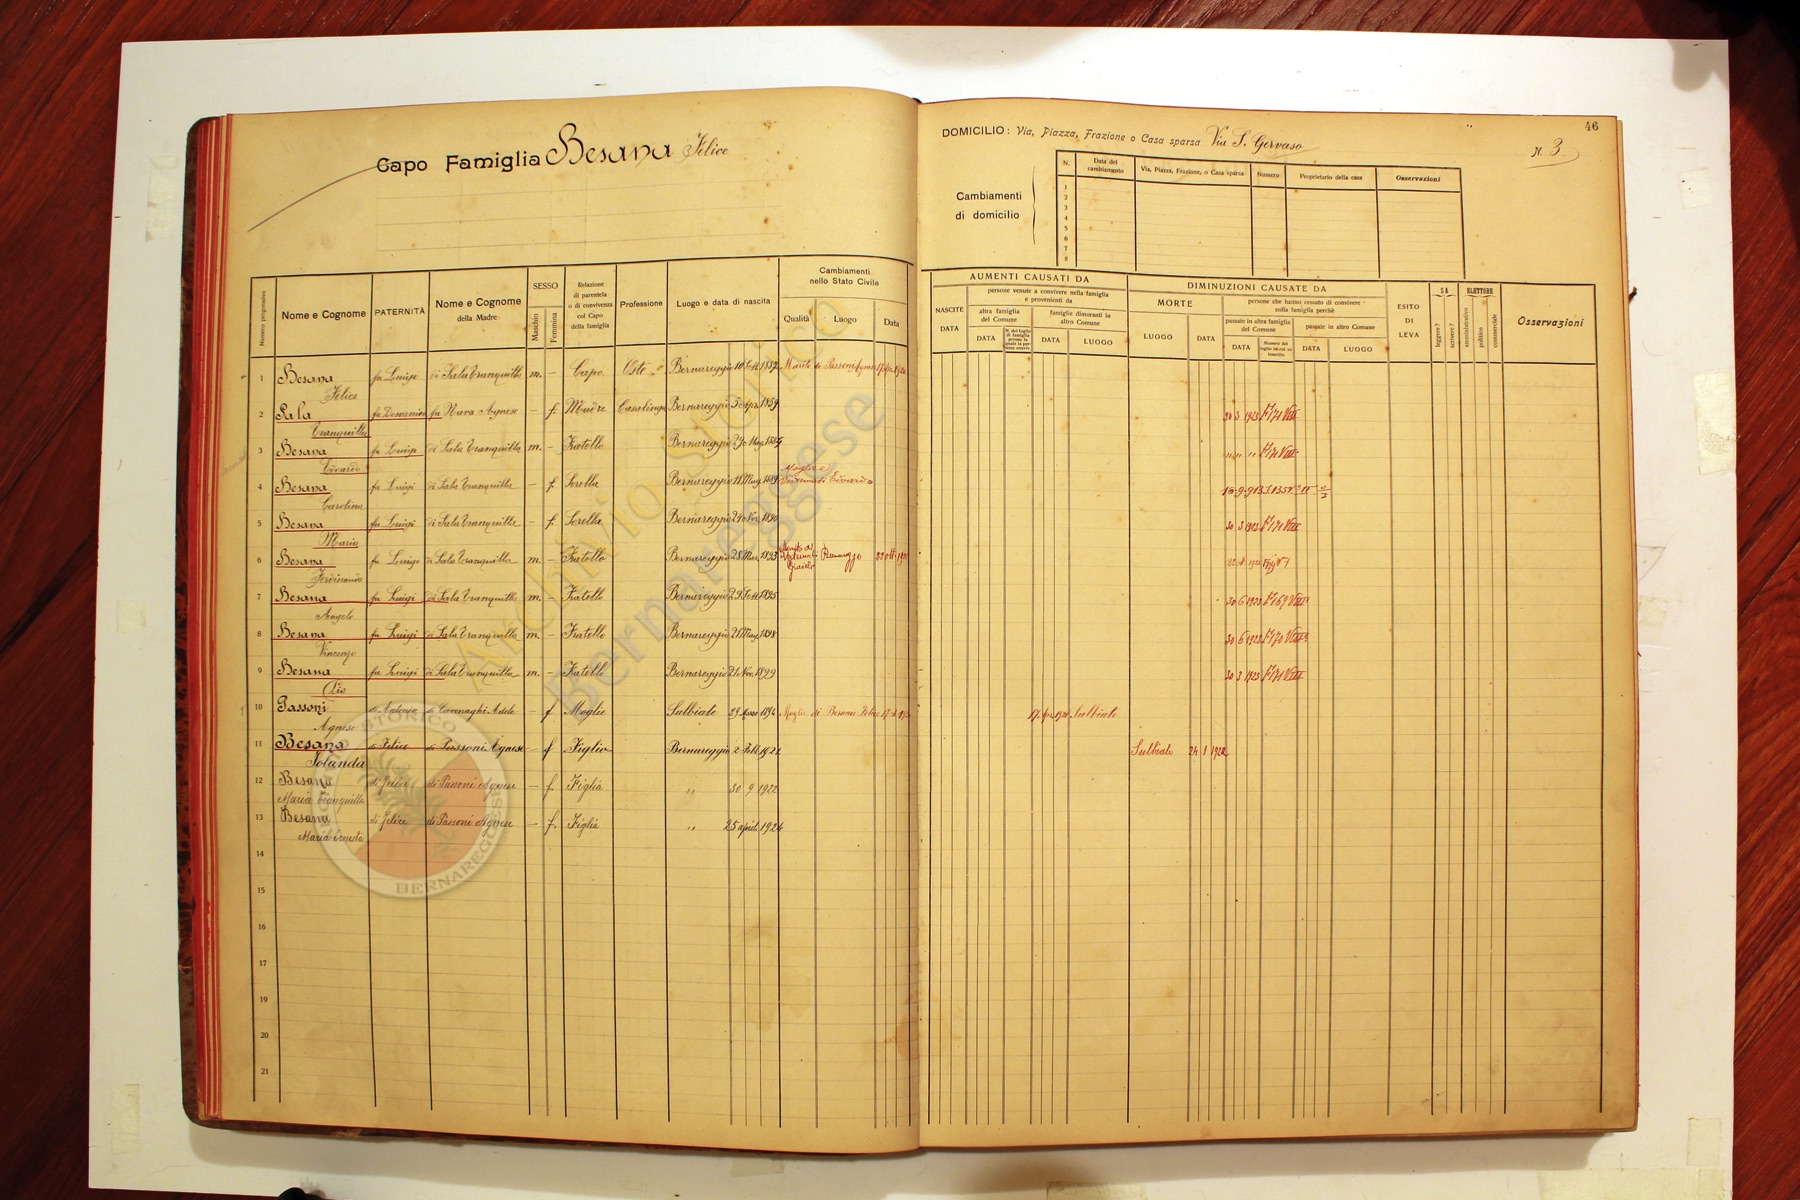 Capo Famiglia Besana Felice
46
DOMICILIO: Via, Piazza, Frazione o Casa sparsa Via S. Gervaso N. 3
Cambiamenti di domicilio
N. Data del cambiamento Via, Piazza, Frazione, o Casa sparsa Numero Proprietario della casa Osservazioni
1
2
3
4
5
6
7
8
Numero progressivo Nome e Cognome PATERNITÀ Nome e Cognome della Madre SESSO Maschio Femmina Relazione di parentela o di convivenza col Capo della famiglia Professione Luogo e data di nascita Cambiamenti nello Stato Civile Qualità Luogo Data
AUMENTI CAUSATI DA
NASCITE DATA
persone venute a convivere nella famiglia e provenienti da
altra famiglia del Comune DATA
famiglie dimoranti in altro Comune DATA LUOGO
DIMINUZIONI CAUSATE DA
MORTE LUOGO DATA
persone che hanno cessato di convivere colla famiglia perchè
passate in altra famiglia del Comune DATA
passate in altro Comune DATA LUOGO
ESITO DI LEVA
SA leggere? scrivere?
ELETTORE amministrativo politico commerciale
Osservazioni
1 Besana Felice fu Luigi di Sala Tranquilla m. - Capo Oste Bernareggio 10 Sett 1887 Marito di Passoni
2 Sala Tranquilla fu Domenico fu Nava Agnese - f. Madre Casalinga Bernareggio 1859 30 3 1923 F. 171 VIII
3 Besana fu Luigi di Sala Tranquilla m. - Fratello Bernareggio 29 " " " F. 171 VIII
4 Besana Carolina fu Luigi di Sala Tranquilla - f. Sorella Bernareggio 1889 Moglie 16-9-913
5 Besana Maria fu Luigi di Sala Tranquilla - f. Sorella Bernareggio 24 Nov. 1890 30 3 1923 F. 171 VIII
6 Besana Ferdinando fu Luigi di Sala Tranquilla m. - Fratello Bernareggio 28 Mar. 1893 Marito di
7 Besana Angelo fu Luigi di Sala Tranquilla m. - Fratello Bernareggio 29 Sett 1895 30 6 1923 F. 169 VIII
8 Besana Vincenzo fu Luigi di Sala Tranquilla m. - Fratello Bernareggio 1898 30 6 1923 F. 170 VIII
9 Besana Pio fu Luigi di Sala Tranquilla m. - Fratello Bernareggio 21 Nov. 1899 30 3 1923 F. 171 VIII
10 Passoni Agnese di Antonio di Cavenaghi Adele - f Moglie Sulbiate 29 1894 Moglie di Besana Felice Sulbiate
11 Besana Iolanda di Felice di Passoni Agnese - f Figlia Bernareggio 2 Febb. 1921 Sulbiate 24 1 1922
12 Besana Maria Tranquilla di Felice di Passoni Agnese - f. Figlia " 30 9 1922
13 Besana Maria Ernesta di Felice di Passoni Agnese - f. Figlia " 25 aprile 1924
14
15
16
17
18
19
20
21
Archivio Storico Bernareggese